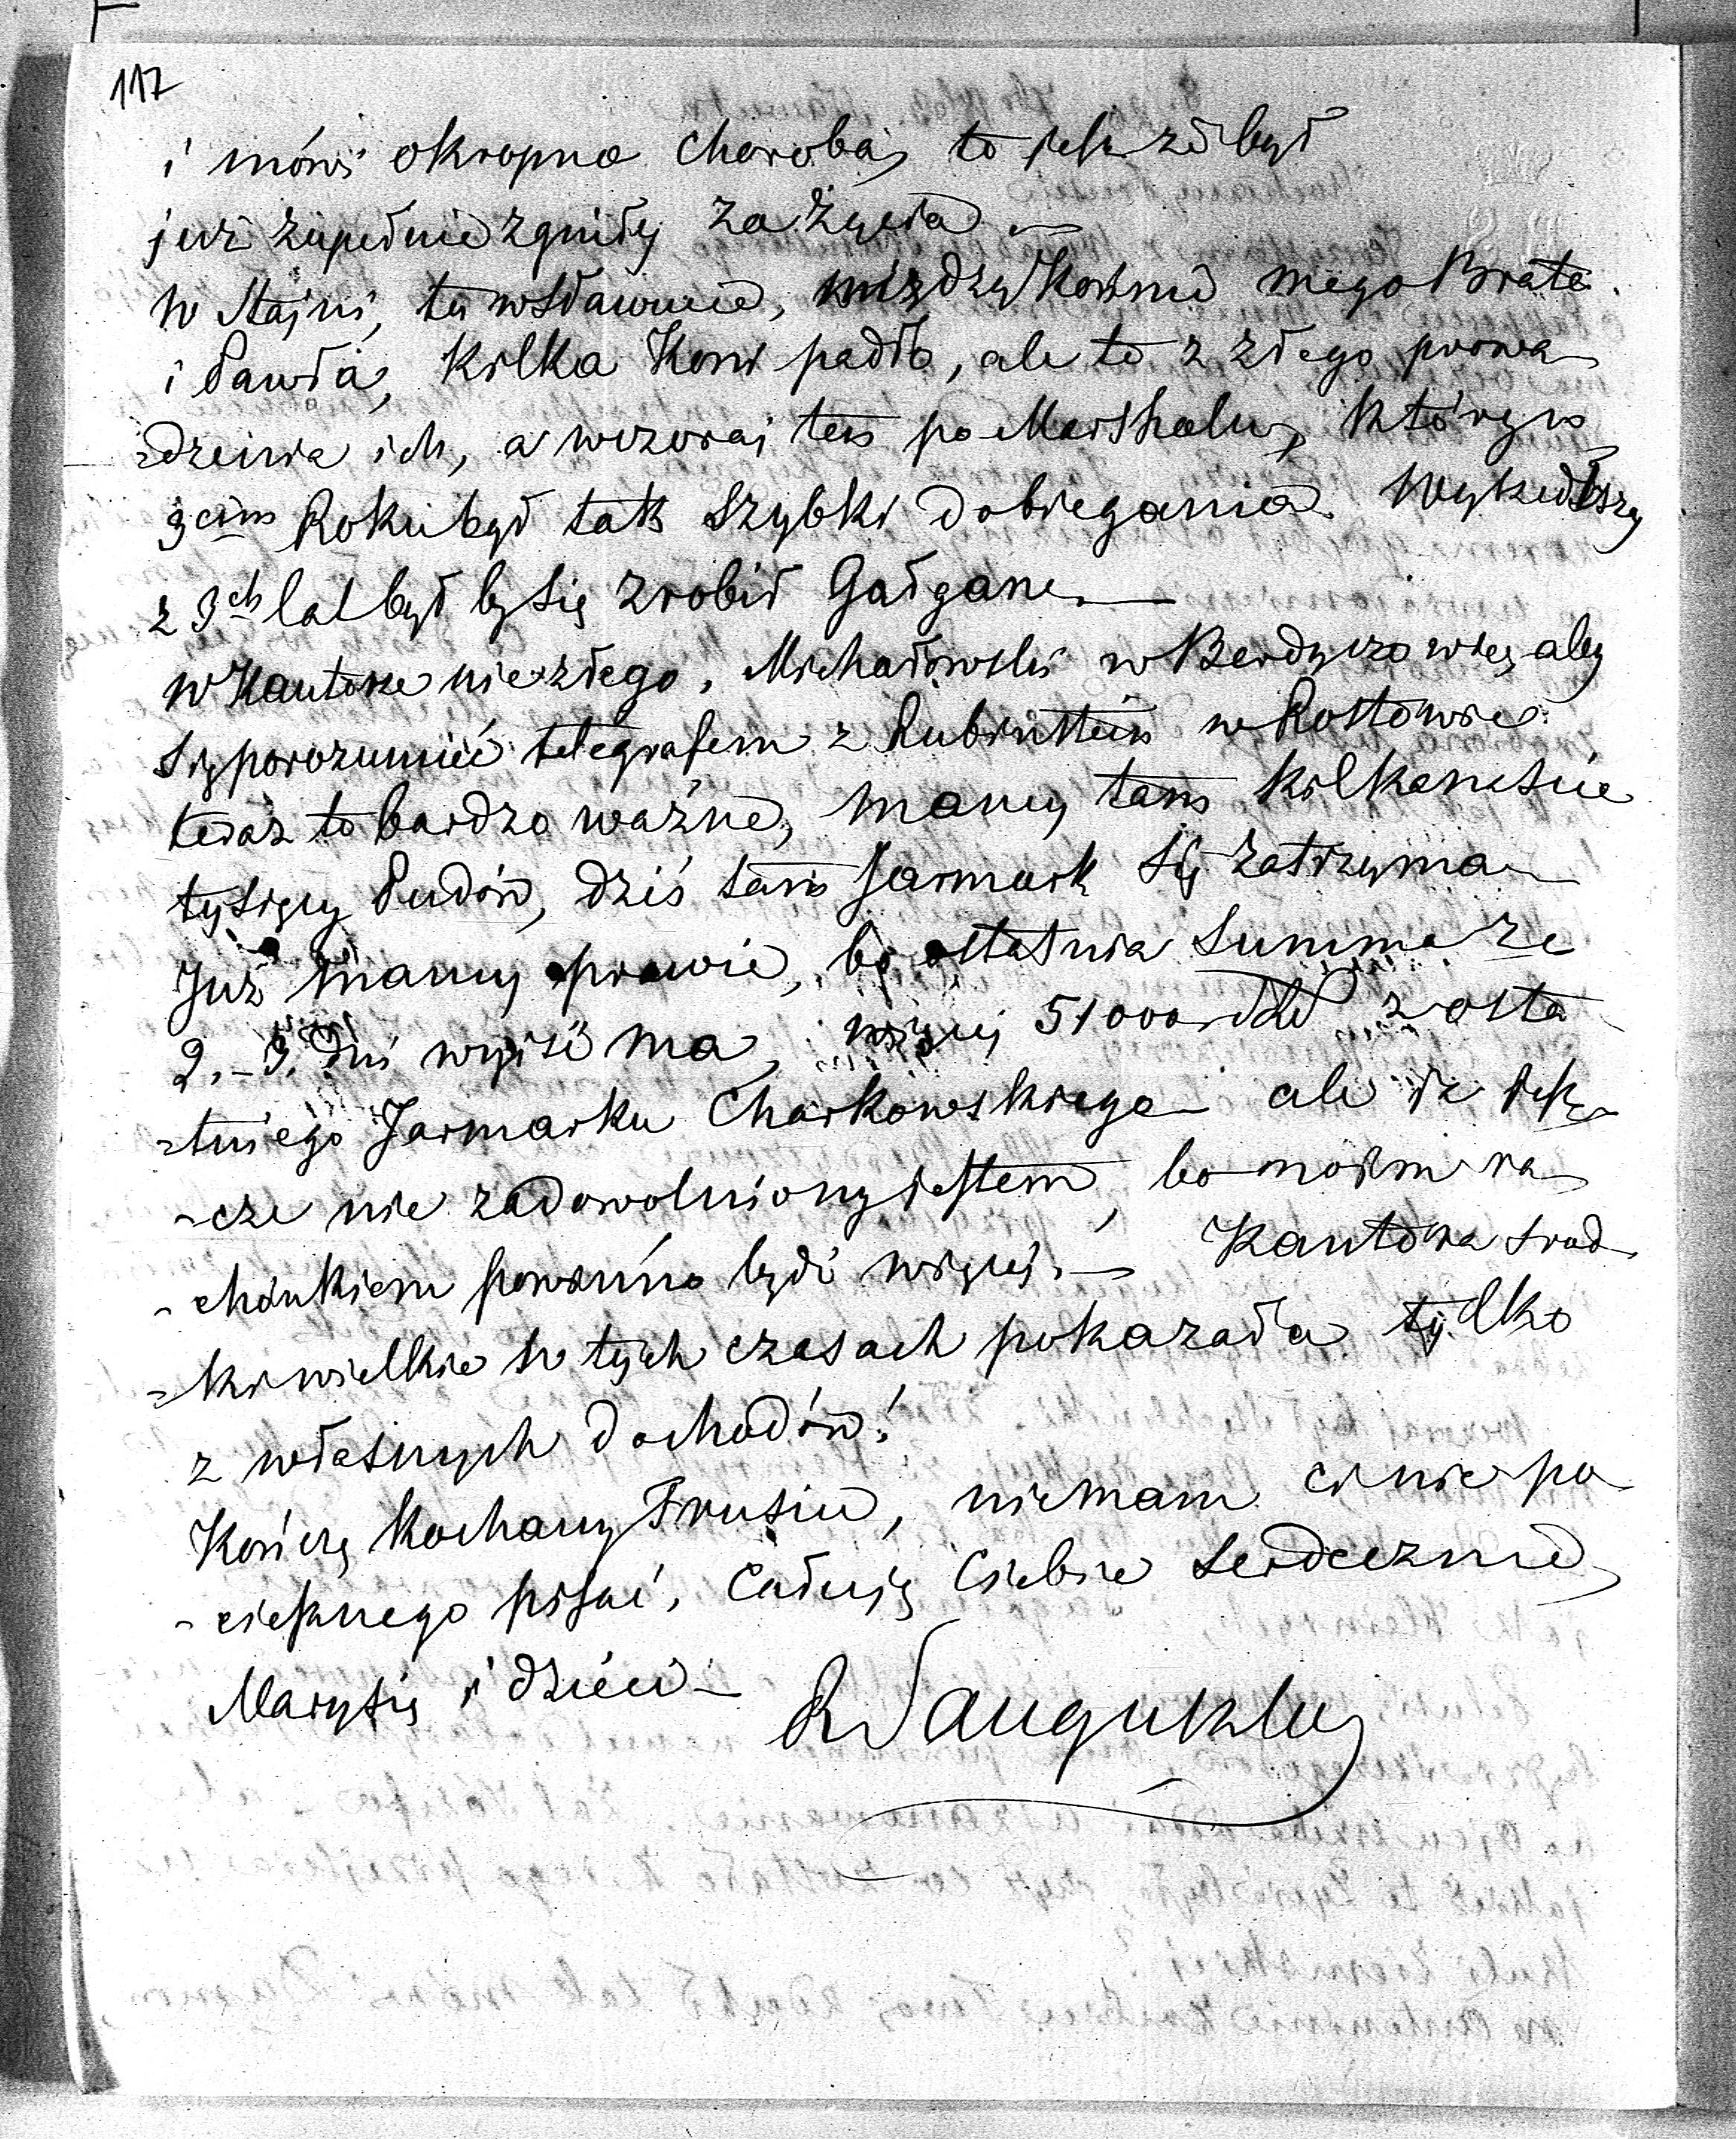 117
i mówi okropna choroba, to jest że był
już zupełnie zgniły za życia —
W Stajni, tu w Sławucie, między Końmi mego Brata
i Pawła, kilka Koni padło, ale to z złego prowa
-dzenia ich, a wczoraj ten po Marshalu, który w
3cim Roku był tak Szybki do biegania. Wyszedłszy
z 3ch lat był by się zrobił Gałgan. —
W Kantorze nie złego. Michałowski w Berdyczowie, aby
się porozumieć telegrafem z Rubinstein w Rostowie
teraz to bardzo ważne, mamy tam kilkanaście
tysięcy Pudów, dziś tam Jarmark się zatrzyma —
Już mamy prawie, bo ostatnia Summa za
2.-3. dni wyjść ma, więcej 51000 z osta
-tniego Jarmarku Charkowskiego — ale ja jesz
-cze nie zadowolniony jestem, bo moim ra
-chunkiem powinno być więcej. — Kantora srod
-ki wielkie w tych czasach pokazała tylko
z własnych dochodów!
Kończę Kochany Trusiu, niemam Ci nic po
-ciesznego pisać, Całuję Ciebie serdecznie
Marysię i dzieci —
R Sanguszko